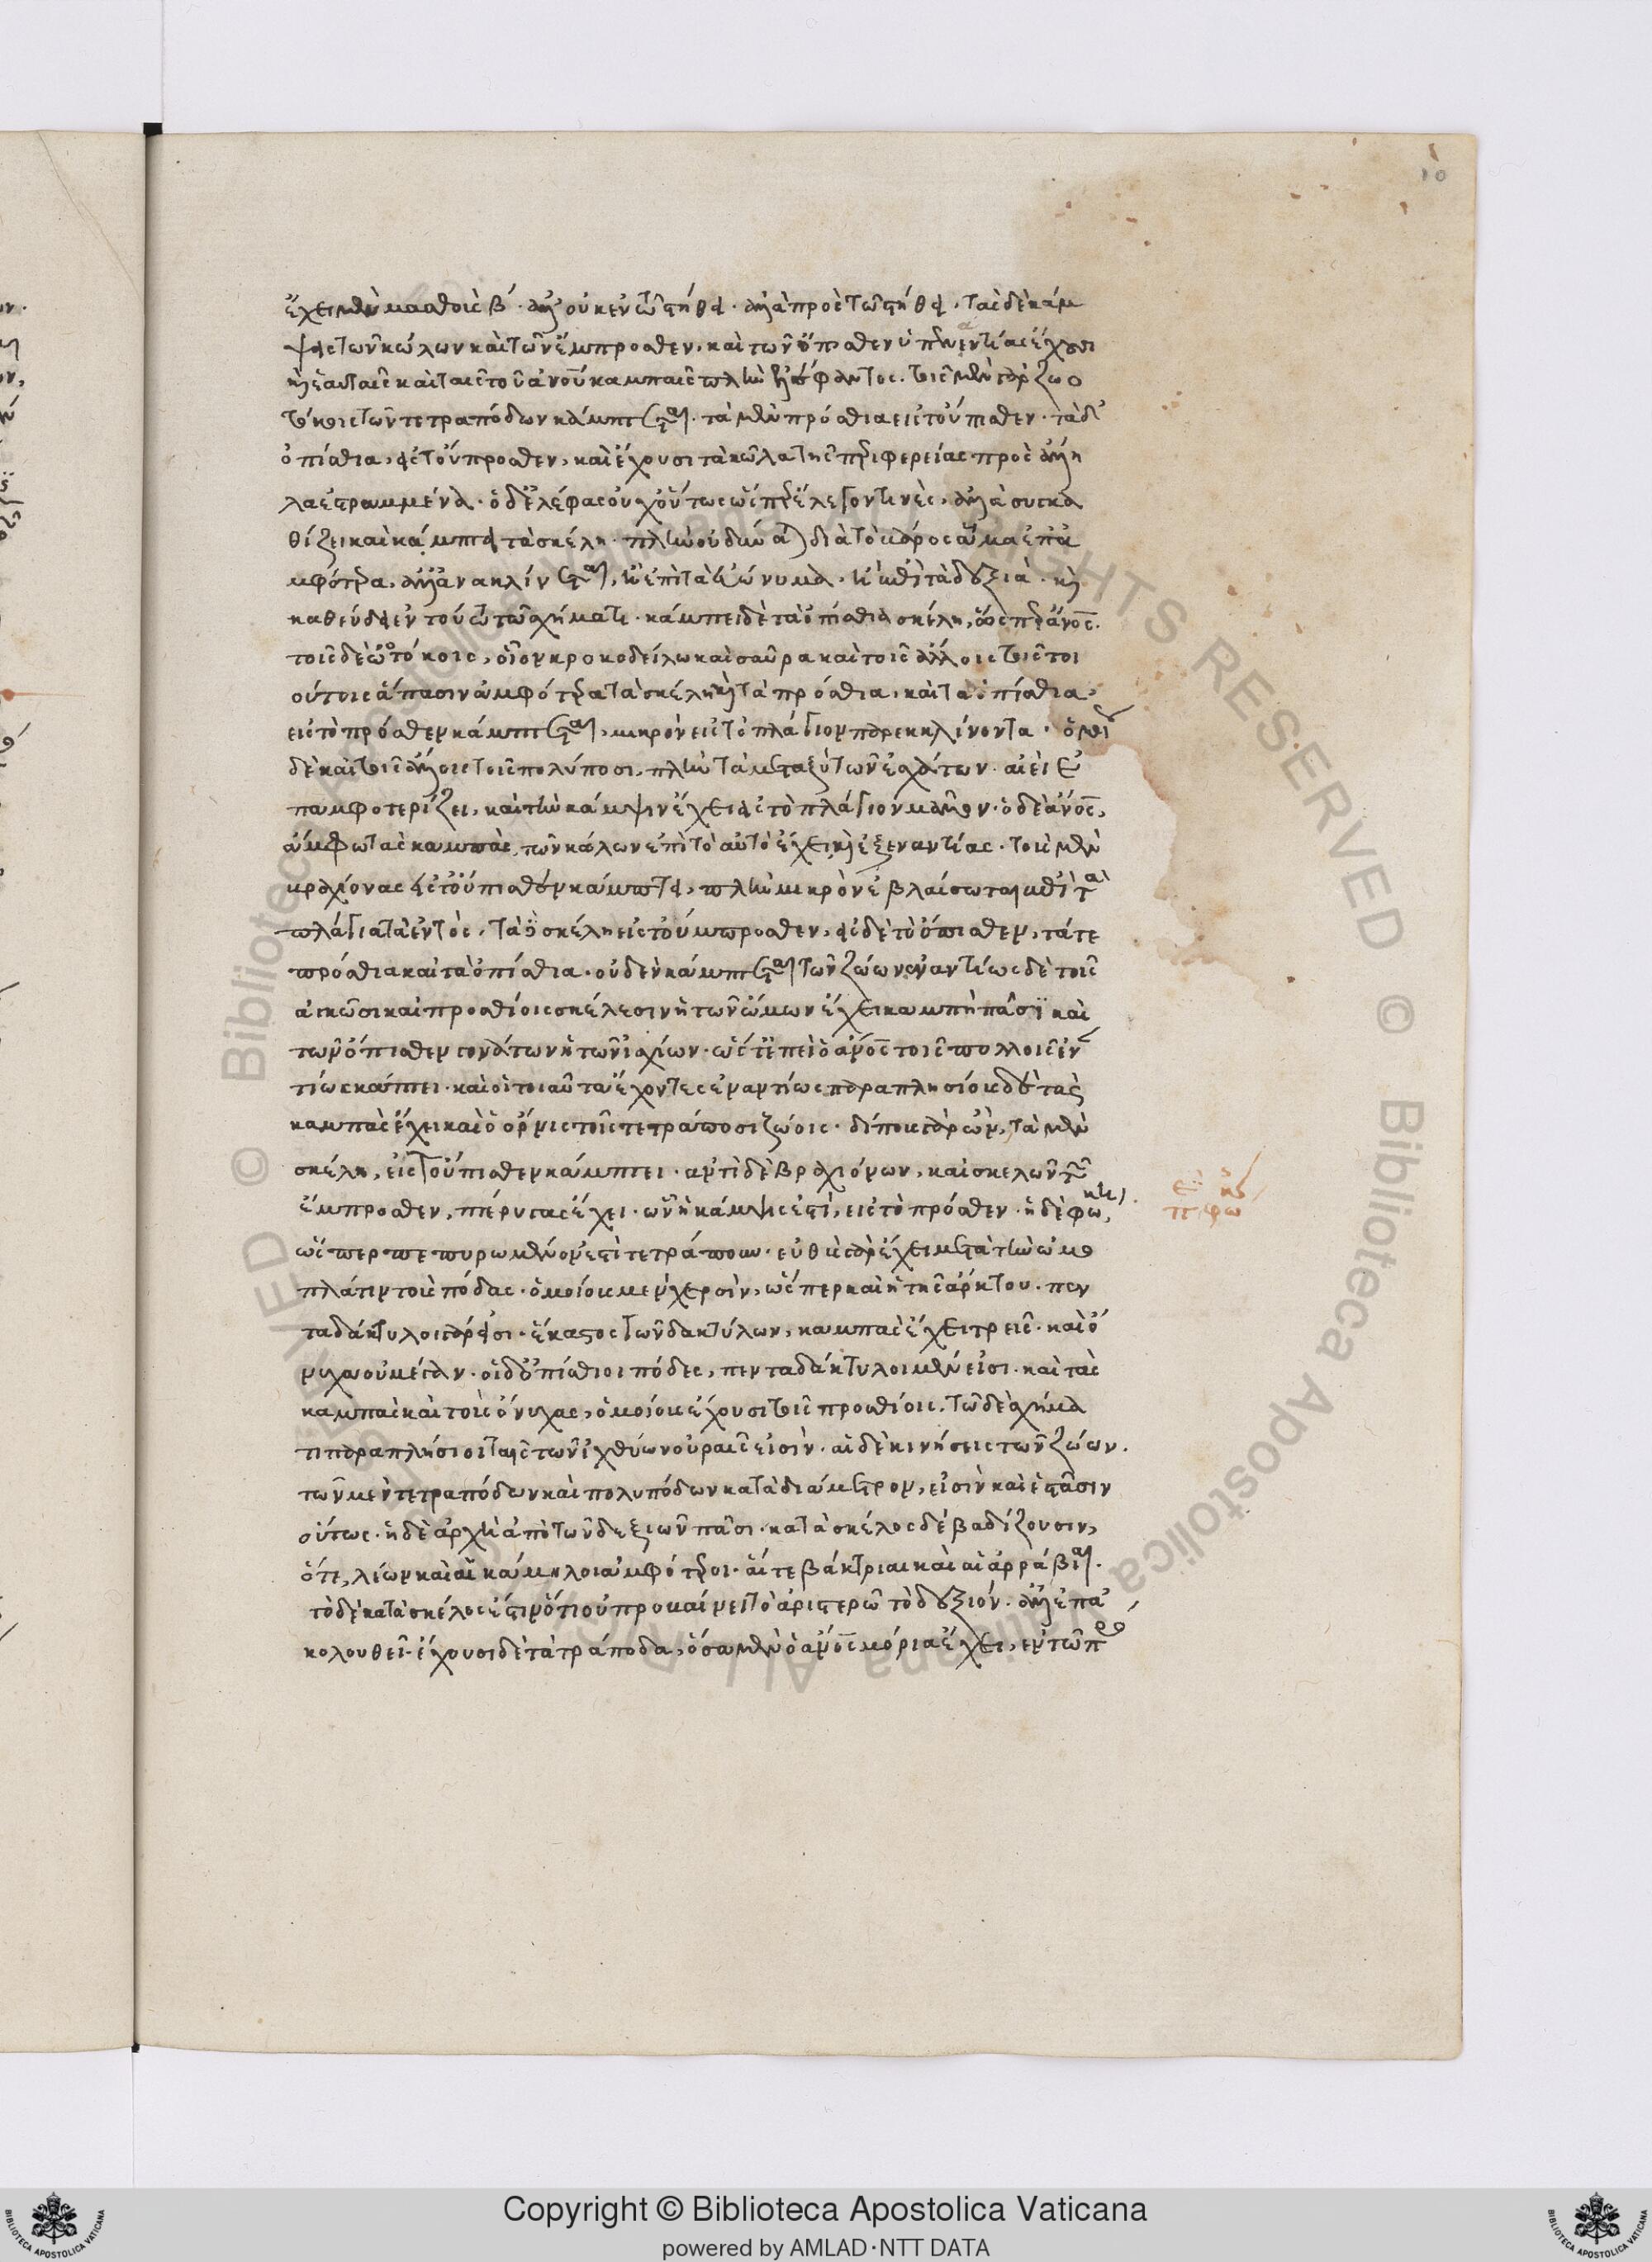 10
ἔχει μὲν μασθοὺς β΄· ἀλλ' οὐκ ἐν τῶ στήθει· ἀλλὰ πρὸς τῶ στήθει· τὰς δὲ κάμ
ψεις τῶν κώλων καὶ τῶν ἔμπροσθεν, καὶ τῶν ὄπισθεν ὑπεναντίας ἔχουσι
καὶ ἑαυταῖς καὶ ταῖς τοῦ ἀνου καμπαῖς πλὴν ἐλέφαντος. τοῖς μὲν γὰρ ζωο
τόκοις τῶν τετραπόδων κάμπτεται· τὰ μὲν πρόσθια εἰς τοὔπισθεν· τὰ δ'
ὀπίσθια, εἰς τοὔμπροσθεν, καὶ ἔχουσι τὰ κοῖλα τῆς περιφερείας πρὸς ἄλλη
λα ἐστραμμένα· ὁ δ' ἐλέφας οὐχ οὕτως ὥσπερ ἔλεγον τινὲς, ἀλλὰ συγκα
θίζει καὶ κάμπτει τὰ σκέλη· πλὴν οὐ δύναται διὰ τὸ βάρος ἅμα ἐπ' ἀ
μφότερα, ἀλλ' ἀνακλίνεται, ἢ ἐπὶ τὰ εὐώνυμα· ἢ ἐπὶ τὰ δεξιὰ· καὶ
καθεύδει ἐν τούτω τῶ σχήματι· κάμπτει δὲ τὰ ὀπίσθια σκέλη, ὥσπερ ἄνος.
τοῖς δὲ ὠοτόκοις, οἷον κροκοδείλω καὶ σαύρα καὶ τοῖς ἄλλοις τοῖς τοι
ούτοις ἅπασιν ἀμφότερα τὰ σκέλη καὶ τὰ πρόσθια, καὶ τὰ ὀπίσθια
εἰς τὸ πρόσθεν κάμπτεται, μικρὸν εἰς τὸ πλάγιον παρεκκλίνοντα· ὁμοί
δὲ καὶ τοῖς ἄλλοις τοῖς πολύποσι, πλὴν τὰ μεταξὺ τῶν ἐσχάτων· αἰεὶ ἐ
παμφοτερίζει, καὶ τὴν κάμψιν ἔχει εἰς τὸ πλάγιον μᾶλλον· ὁ δὲ ἄνος,
ἄμφω τὰς καμπὰς τῶν κώλων ἐπὶ τὸ αὐτὸ ἔχει καὶ ἐξ ἐναντίας· τοὺς μὲν
βραχίονας εἰς τοὔπισθεν κάμπτει, πλὴν μικρὸν ἐβλαίσωται ἐπὶ τὰ
πλάγια τὰ ἐντός, τὰ δὲ σκέλη εἰς τοὔμπροσθεν, εἰς δὲ τὸ ὄπισθεν, τά τε
πρόσθια καὶ τὰ ὀπίσθια· οὐδὲν κάμπτεται τῶν ζώων· ἐναντίως δὲ τοῖς
ἀγκῶσι καὶ προσθίοις σκέλεσιν ἡ τῶν ὤμων ἔχει καμπὴ πᾶσι καὶ
τῶν ὄπισθεν γονάτων ἡ τῶν ἰσχίων· ὥστ' ἐπεὶ ὁ ἄνος τοῖς πολλοῖς ἐν
τίως κάμπτει· καὶ οἱ τοιαῦτα ἔχοντες ἐναντίως παραπλησίους δὲ τὰς
καμπὰς ἔχει καὶ ὁ ὄρνις τοῖς τετράποσι ζώοις· δίπους γὰρ ὢν, τὰ μὲν
σκέλη, εἰς τοὔπισθεν κάμπτει· ἀντὶ δὲ βραχιόνων, καὶ σκελῶν τῶν
ἔμπροσθεν, πτέρυγας ἔχει· ὧν ἡ κάμψις ἐστὶ, εἰς τὸ πρόσθεν· ἡ δὲ φώκη,
ὥσπερ πεπηρωμένον ἐστὶ τετράπουν· εὐθὺς γὰρ ἔχει μετὰ τὴν ὠμο
πλάτην τοὺς πόδας· ὁμοίους μὲν χερσὶν, ὥσπερ καὶ ἡ τῆς ἄρκτου· πεν
ταδάκτυλοι γάρ εἰσι· ἕκαστος τῶν δακτύλων, καμπὰς ἔχει τρεῖς· καὶ ὄ
νυχα οὐ μέγαν· οἱ δ' ὀπίσθιοι πόδες, πενταδάκτυλοι μὲν εἰσι· καὶ τὰς
καμπὰς καὶ τοὺς ὄνυχας, ὁμοίους ἔχουσι τοῖς προσθίοις, τῶ δὲ σχήμα
τι παραπλήσιοι ταῖς τῶν ἰχθύων οὐραῖς εἰσίν· αἱ δὲ κινήσεις τῶν ζώων.
τῶν μὲν τετραπόδων καὶ πολυπόδων κατὰ διάμετρον, εἰσὶν καὶ ἑστᾶσιν
οὕτως· ἡ δὲ ἀρχὴ ἀπὸ τῶν δεξιῶν πᾶσι· κατὰ σκέλος δὲ βαδίζουσιν,
ὅτε, λέων καὶ αἱ κάμηλοι ἀμφότεροι· αἵ τε βάκτριαι καὶ αἱ ἀρράβιαι.
τὸ δὲ κατὰ σκέλος ἐστὶν ὅτι οὐ προβαίνει τὸ ἀριστερῶ τὸ δεξιόν· ἀλλ' ἐπα
κολουθεῖ· ἔχουσι δὲ τὰ τετράποδα, ὅσα μὲν ὁ ἄνος μόρια ἔχει, ἐν τῶ π